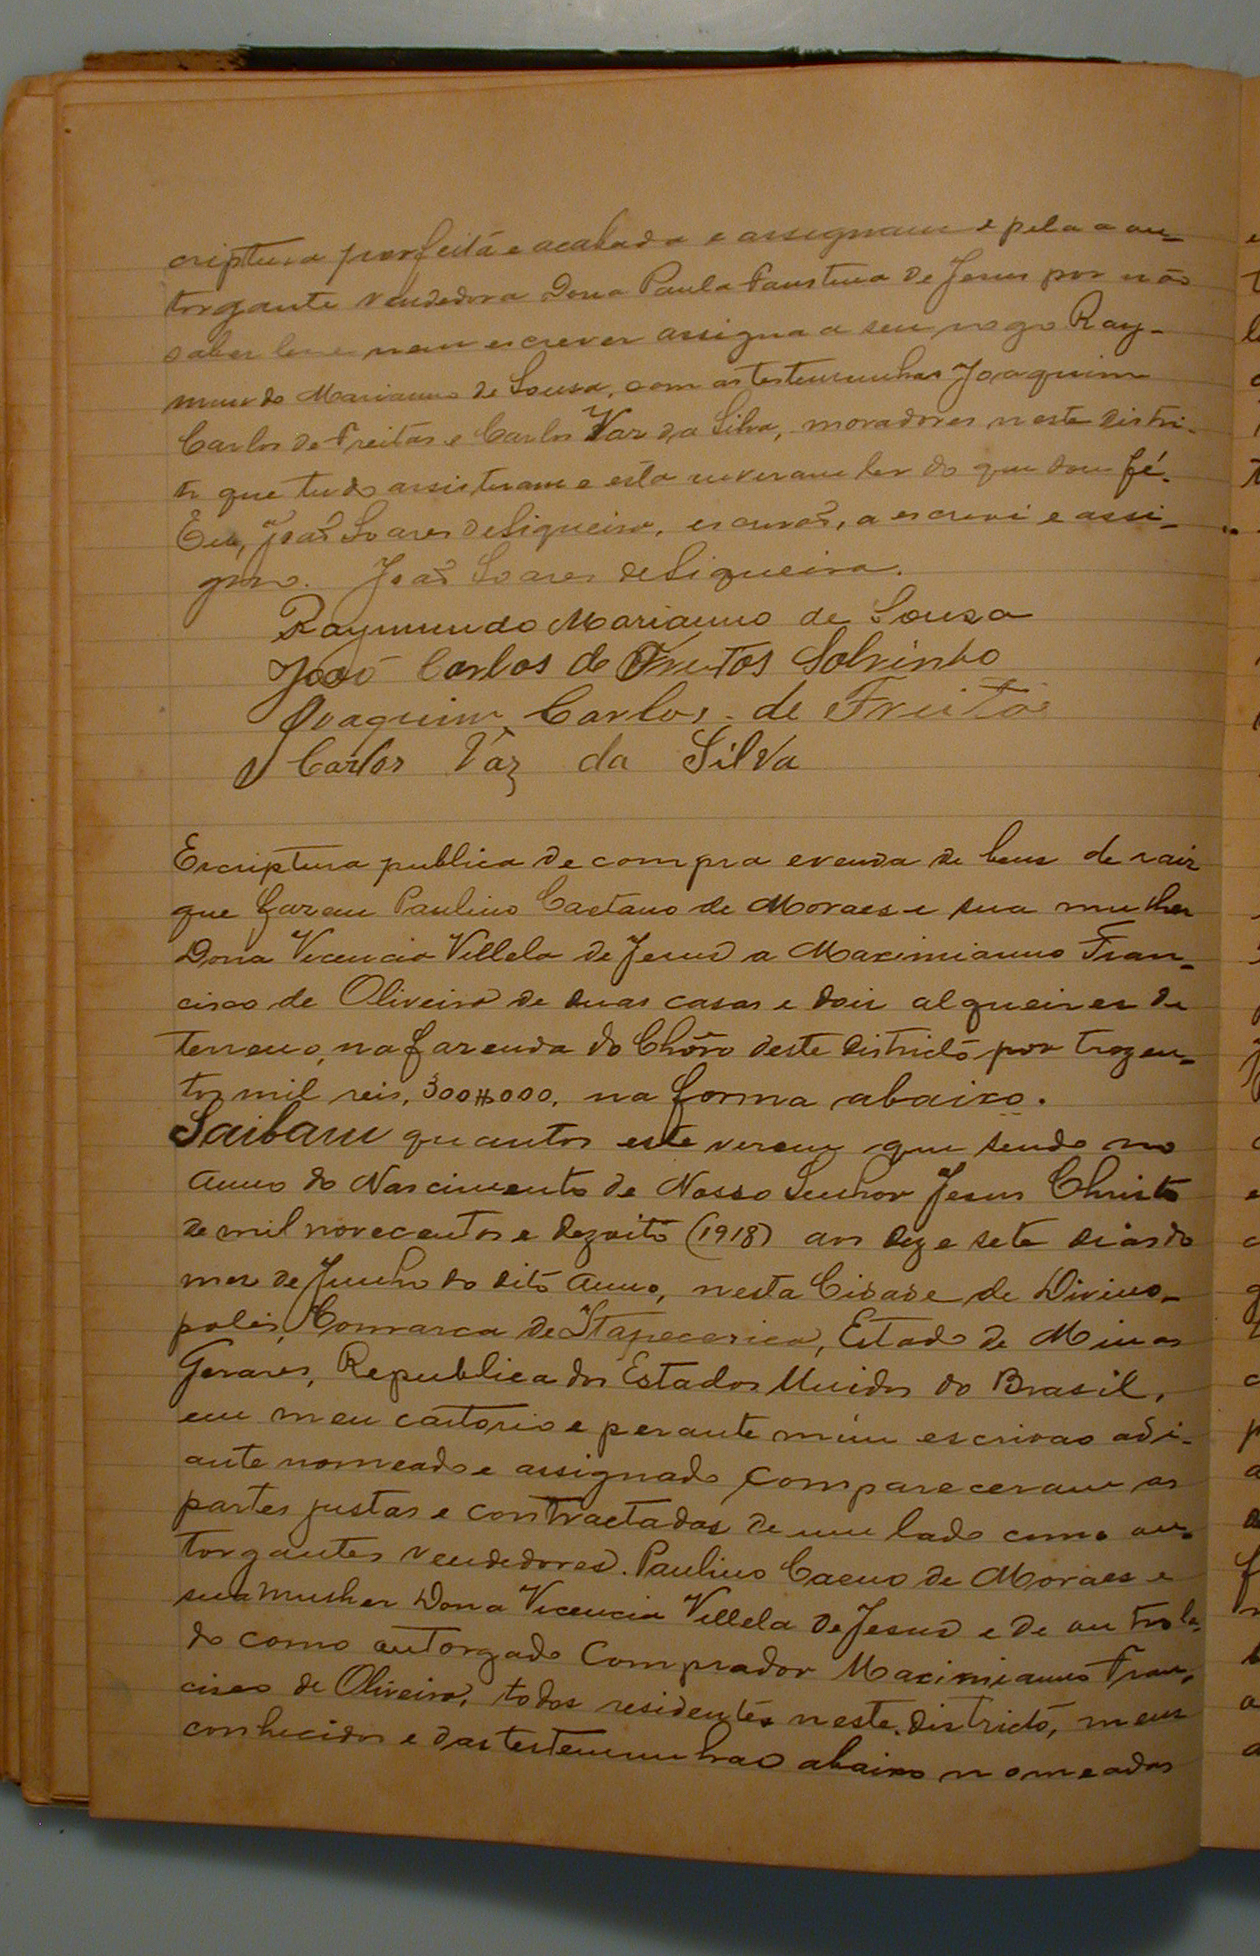 criptura perfeita e acabada e assignam e pela a au-
torgante vendedora Dona Paula Faustina de Jesus por não
saber ler e nem escrever assigna a seu rogo Ray-
mundo Marianno de Sousa, com as testemunhas Joaquim
Carlos de Freitas e Carlos Vaz da Silva, moradores neste distri-
to que tudo assisteram e esta ouveram ler do que dou fé.
Eu, João Soares de Siqueira, escrivão, a escrevi e assi-
gno. João Soares de Siqueira.
Raymundo Marianno de Sousa
João Carlos de Freitas Sobrinho
Joaquim Carlos de Freitas
Carlos Vaz da Silva
Escriptura publica de compra e venda de bens de raiz
que fazem Paulino Caetano de Moraes e sua mulher
Dona Vicencia Villela de Jesus a Maximianno Fran-
cisco de Oliveira de duas casas e dois alqueires de
terreno, na fazenda do Chôro deste districto por trezen-
tos mil reis, 300$000, na forma abaixo.
Saibam quantos este verem que sendo no
Anno do Nascimento de Nosso Senhor Jesus Christo
de mil novecentos e dezoito (1918) aos deze sete dias do
mez de Junho do dito anno, nesta Cidade de Divino-
polis, Comarca de Itapecerica, Estado de Minas
Geraes, Republica dos Estados Unidos do Brasil,
em meu cartorio e perante mim escrivao adi-
ante nomeado e assignado compareceram as
partes justas e contractadas de um lado como au-
torgantes vendedores. Paulino Caeno de Moraes e
sua mulher Dona Vicencia Villela de Jesus e de outro la-
do como autorgado Comprador Maximianno Fran-
cisco de Oliveira, todos residentes neste districto, meus
conhecidos e das testemunhas abaixo nomeadas